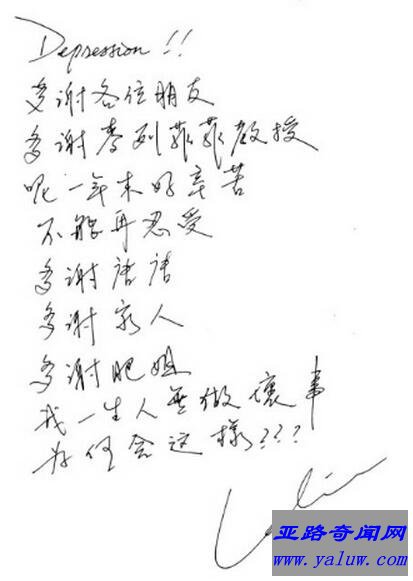 Depression!!
多谢各位朋友
多谢麥列菲菲教授
呢一年来好辛苦
不能再忍受
多谢唐唐
多谢家人
多谢肥姐
我一生人無做壞事
为何会这樣???
亚路奇闻网
www.yaluw.com